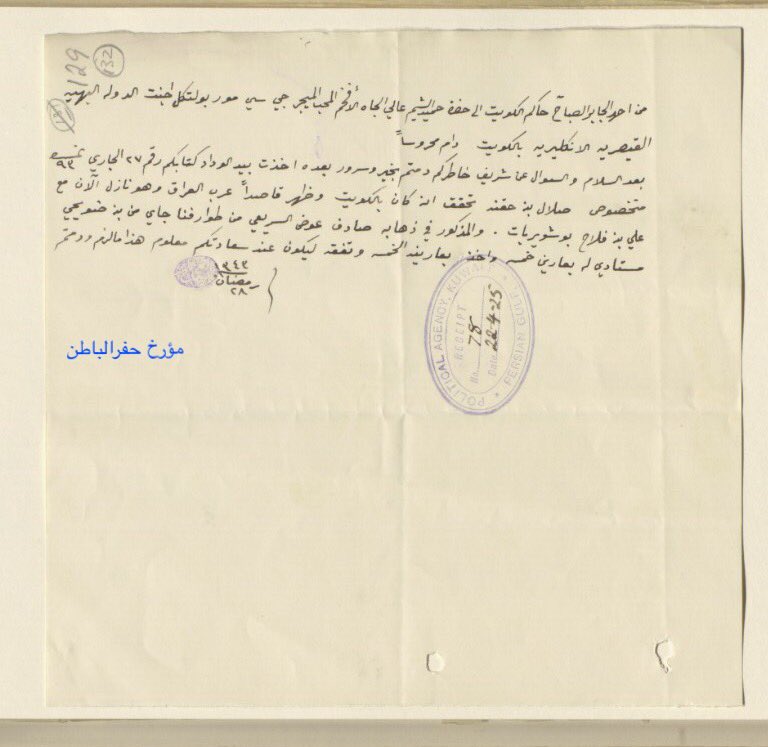 129
132
من احمد الجابر الصباح حاكم الكويت الى حضرة حميد الشيم عالي الجاه الأفخم المحب الميجر جي سي مور بولتكل اجنت الدوله البهيه
القيصريه الانكليزيه بالكويت دام محروساً
بعد السلام والسؤال عن شريف خاطركم دمتم بخير وسرور بعده اخذت بيد الوداد كتابكم رقم ٢٧ الجاري نمره ٩٣
متخصوص صلال بن حقنه تحقق انه كان بالكويت وظهر قاصداً عرب العراق وهو نازل الآن مع
علي بن فلاح بو شويربات . والمذكور في ذهابه صادف عوض السريعي من طوارفنا جاي من بن ضويحي
مستادي له بعارين خمسه واخذ بعارينه الخمسه وتفقه ليكون عند سعادتكم معلوم هذا مالزم ودمتم
٣٤٣
رمضان
٢٨
POLITICAL AGENCY, KUWAIT
PERSIAN GULF
RECEIPT
No. 78
Date 22-4-25
مؤرخ حفرالباطن